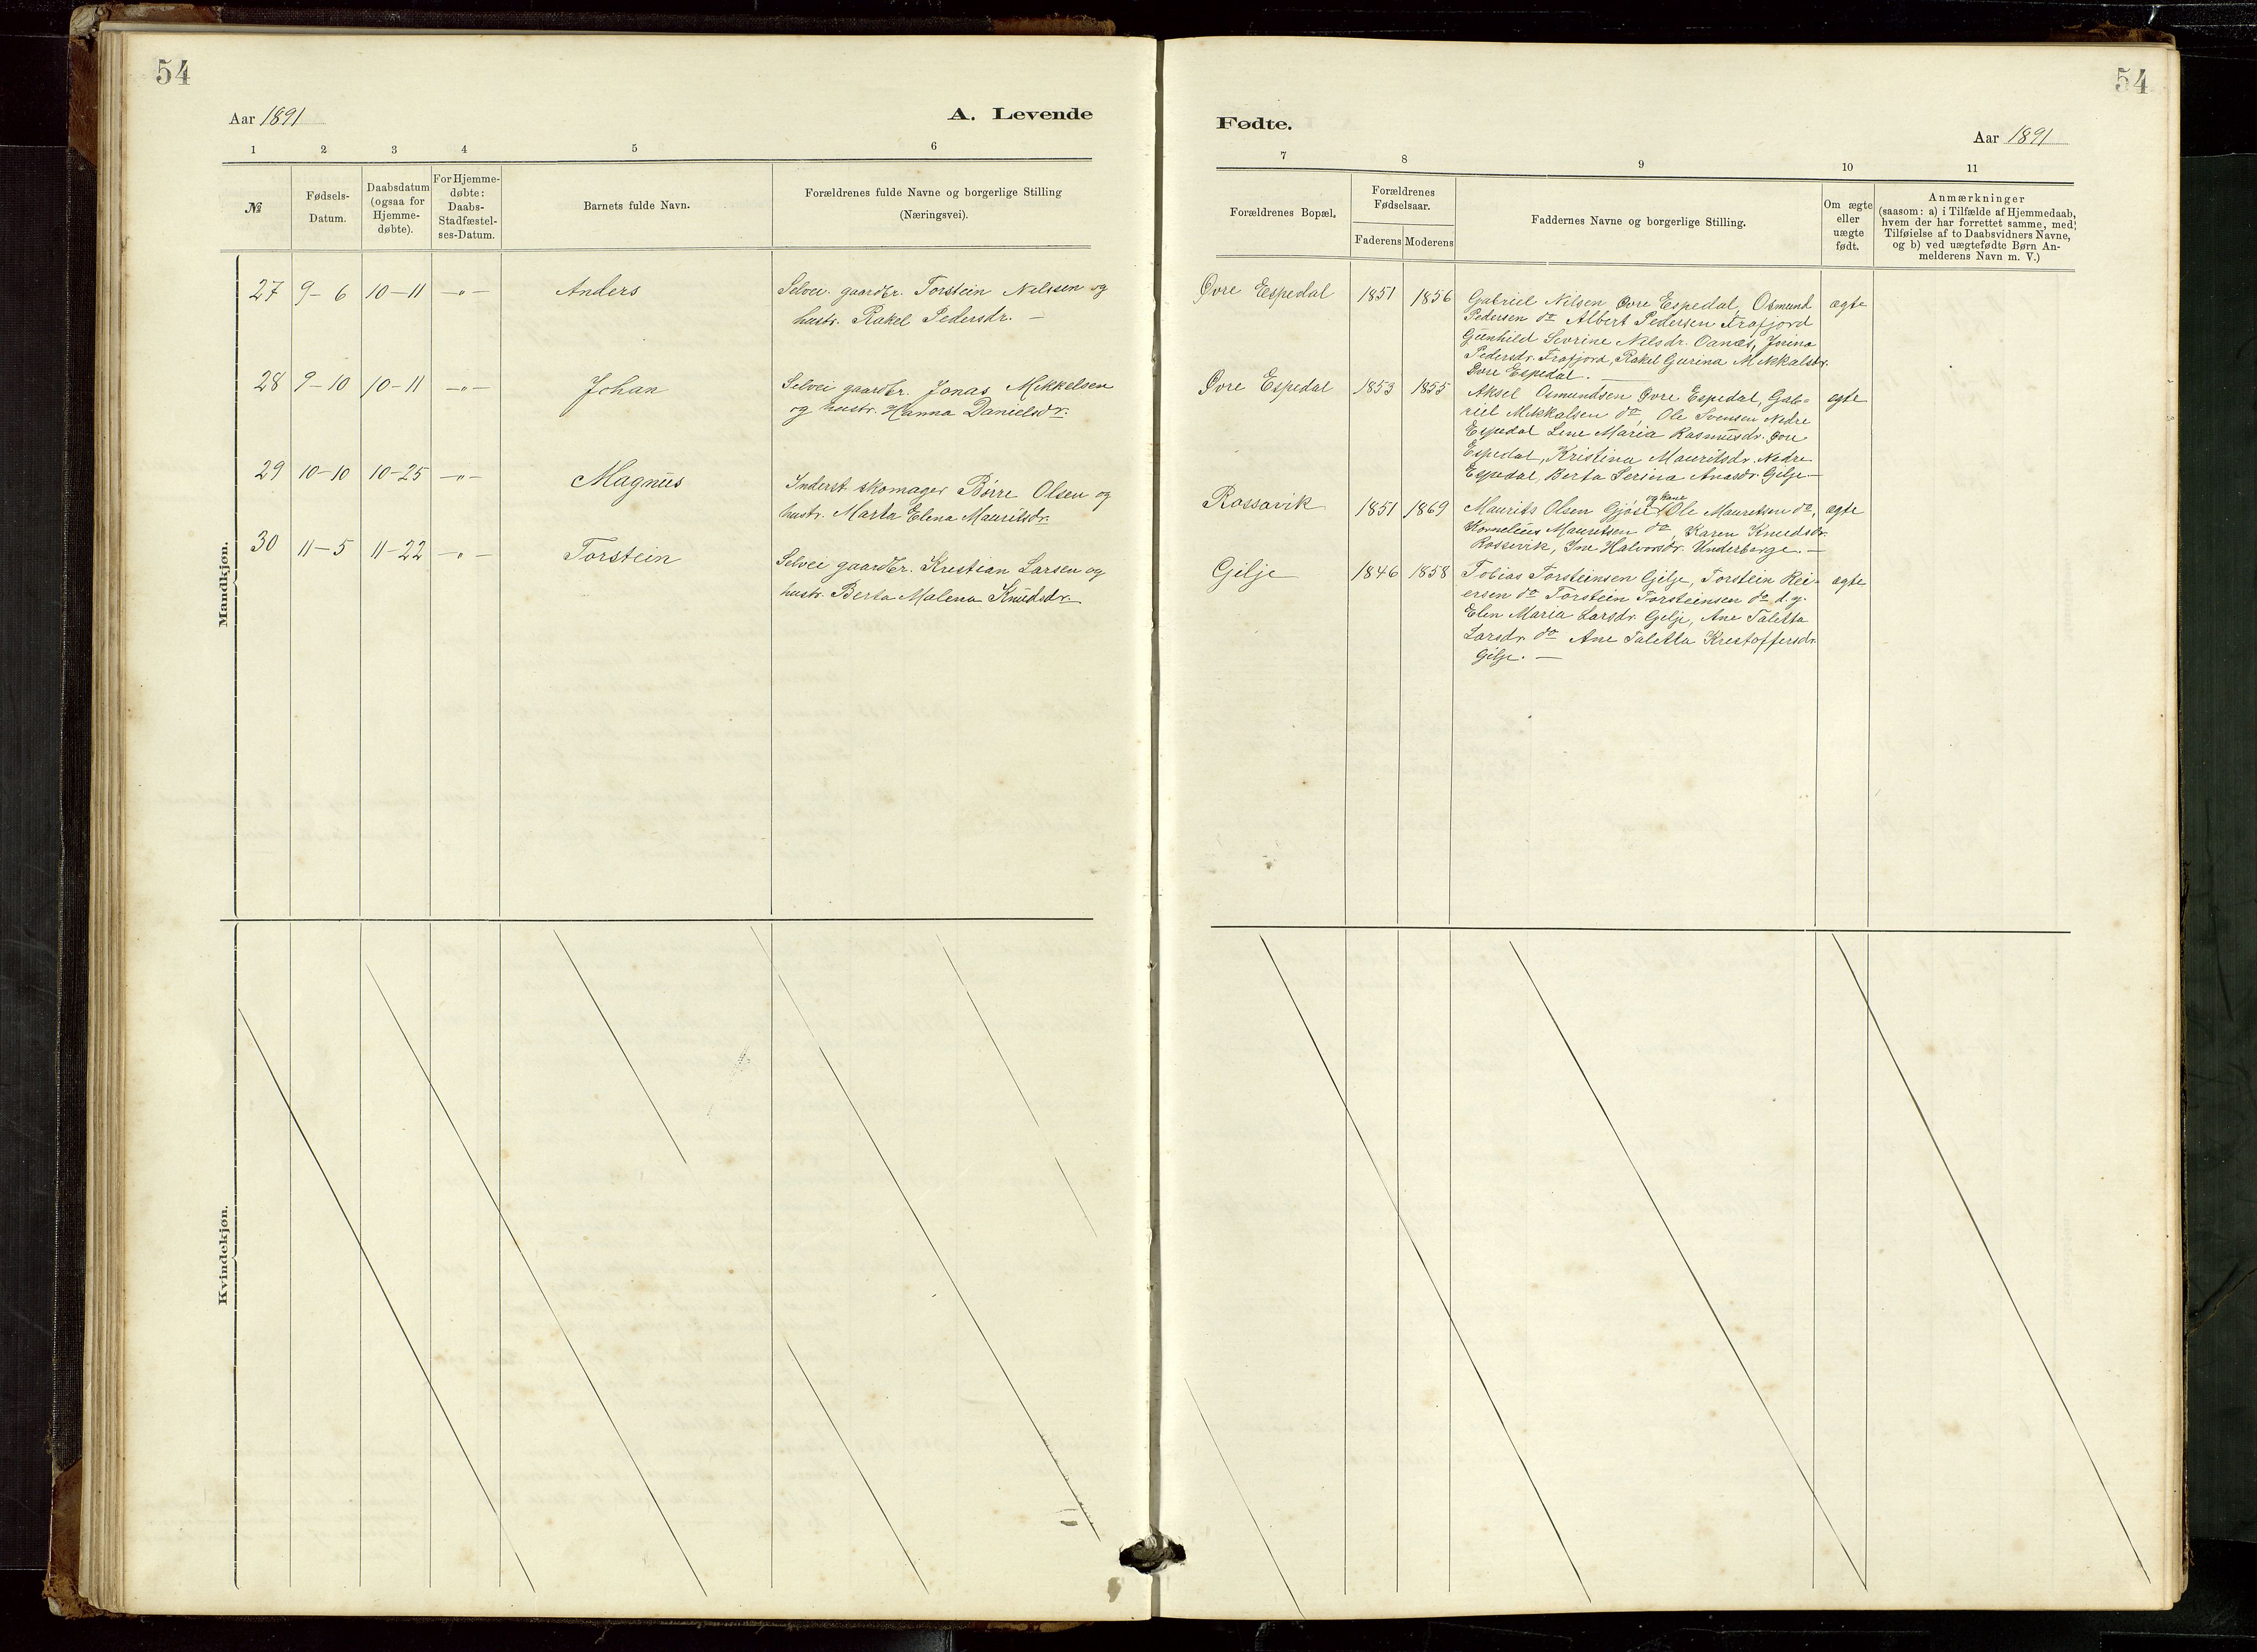 54
Aar 1891
A. Levende
1 2 3 4 5 6
№
Fødsels-
Datum.
Daabsdatum
(ogsaa for
Hjemme-
døbte).
For Hjemme-
døbte:
Daabs-
Stadfæstel-
ses-Datum.
Barnets fulde Navn.
Forældrenes fulde Navne og borgerlige Stilling
(Næringsvei).
Mandkjøn.
27 9-6 10-11 -"- Anders
Selvei. gaardbr. Torstein Nilssen og
hustr. Rakel Pedersdr. —
28 9-10 10-11 -"- Johan
Selvei gaardbr. Jonas Mikkelsen
og hustr. Hanna Danielsdr.
29 10-10 10-25 -"- Magnus
Inderst skomager Børre Olsen og
hustr. Marta Elena Mauritsdr.
30 11-5 11-22 -"- Torstein
Selvei gaardbr. Kristian Larsen og
hustr. Berta Malena Knudsdr.
Kvindekjøn.
54
Fødte.
Aar 1891
7 8 9 10 11
Forældrenes Bopæl.
Forældrenes
Fødselsaar.
Faderens Moderens
Faddernes Navne og borgerlige Stilling.
Om ægte
eller
uægte
født.
Anmærkninger
(saasom: a) i Tilfælde af Hjemmedaab,
hvem der har forrettet samme, med
Tilføielse af to Daabsvidners Navne,
og b) ved uægtefødte Børn An-
melderens Navn m. V.)
Øvre Espedal 1851 1856 ægte
Gabriel Nilsen Øvre Espedal, Osmund
Pedersen do Albert Pedersen Frafjord
Gunhild Sivrine Nilsdr. Oanæs, Jorina
Pedersdr. Frafjord, Rakel Gurina Mikkalsdr.
Øvre Espedal. —
Øvre Espedal 1853 1855 ægte
Aksel Osmundsen Øvre Espedal, Gab-
riel Mikkalsen do, Ole Svensen Nedre
Espedal Line Maria Rasmusdr. Øvre
Espedal, Kristina Mauritsdr. Nedre
Espedal, Berta Serina Anasdr. Gilje —
Rossavik 1851 1869 ægte
og kone
Maurits Olsen Gjøse Ole Mauritsen do,
Kornelius Mauritsen do, Karen Knudsdr.
Rossevik, Ine Halvorsdr. Underberge. —
Gilje 1846 1858 ægte
Tobias Torsteinsen Gilje, Torstein Rei-
ersen do Torstein Torsteinsen do d.y.
Elen Maria Larsdr. Gilje, Ane Taletta
Larsdr. do Ane Taletta Kristoffersdr.
Gilje. —